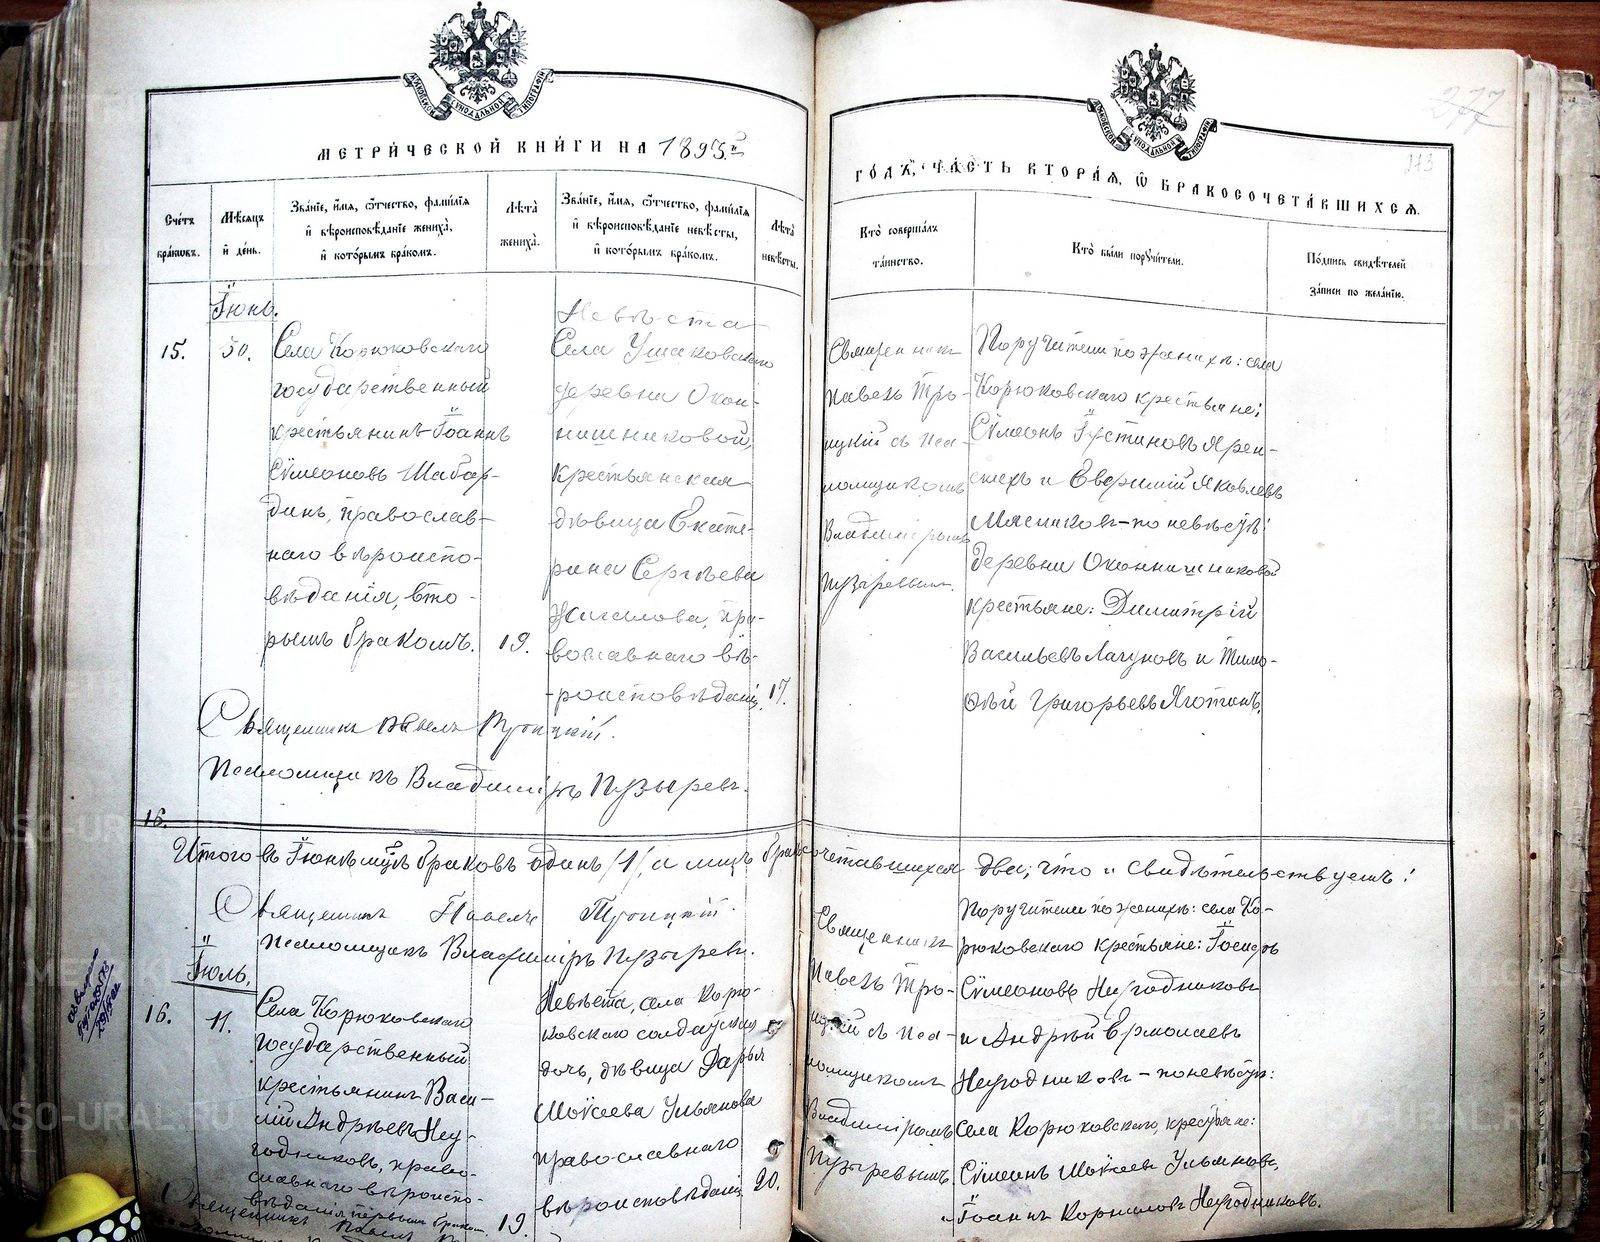 МЕТРИ́ЧЕСКОЙ КНИ́ГИ НА 1895й
ГО́ДЪ, ЧА́СТЬ ВТОРА́Я, Ѡ БРАКОСОЧЕТА́ВШИХСЯ.
277
Сче́тъ бра́кѡвъ.
Мѣ́сяцъ и де́нь.
Зва́нїе, и́мя, ѻ́тчество, фами́лїя и вѣроисповѣ́данїе жениха̀, и кото́рымъ бра́комъ.
Лѣта̀ жениха̀.
Зва́нїе, и́мя, ѻ́тчество, фами́лїя и вѣроисповѣ́данїе невѣ́сты, и кото́рымъ бра́комъ.
Лѣта̀ невѣ́сты.
Кто̀ соверша́лъ та́инство.
Кто̀ бы́ли поручи́тели.
По́дпись свидѣ́телей за́писи по жела́нїю.
Іюнь.
15.
30.
Села Корюковскаго
государственный
крестьянинъ Іоаннъ
Сѵмеоновъ Шабар-
динъ, православ-
наго вѣроиспо-
вѣданія, вто-
рымъ бракомъ.
19.
Невѣста
Села Ушаковскаго
деревни Окон-
нишниковой,
крестьянская
дѣвица Екате-
рина Сергѣева
православнаго вѣ-
-роисповѣданія,
17.
Священникъ
Павелъ Тро-
ицкій съ пса-
ломщикомъ
Владиміромъ
Пузыревымъ.
Поручители по женихѣ: села
Корюковскаго крестьяне:
Сѵмеонъ Іустиновъ
и Евфимій Яковлевъ
Мясниковъ – по невѣстѣ:
деревни Оконнишниковой
крестьяне: Димитрій
Васильевъ Лагуновъ и Тимо-
ѳей Григорьевъ
Священникъ Павелъ Троицкій.
Псаломщикъ Владиміръ Пузыревъ.
16.
Итого въ Іюнѣ мцѣ браковъ одинъ /1/, а лицъ бракосочетавшихся два; что и свидѣтельствуемъ:
Священникъ Павелъ Троицкій.
Псаломщикъ Владиміръ Пузыревъ.
Іюль.
16.
11.
Села Корюковскаго
государственный
крестьянинъ Васи-
лій Андреевъ Неу-
годниковъ, право-
славнаго вѣроиспо-
вѣданія, первымъ бракомъ.
19.
Невѣста, села Корю-
ковскаго солдатская
дочь, дѣвица Дарья
Моѵсеева Ульянова
православнаго
вѣроисповѣданія
20.
Священникъ
Павелъ Тро-
ицкій съ пса-
ломщикомъ
Владиміромъ
Пузыревымъ
Поручители по женихѣ: села Ко-
рюковскаго крестьяне: Іосифъ
Сѵмеоновъ Неугодниковъ
и Андрей Ермолаевъ
Неугодниковъ – по невѣстѣ:
села Корюковскаго, крестьяне:
Сѵмеонъ Моѵсеевъ Ульяновъ,
Іоаннъ Корниловъ Неугодниковъ.
Священникъ Павелъ